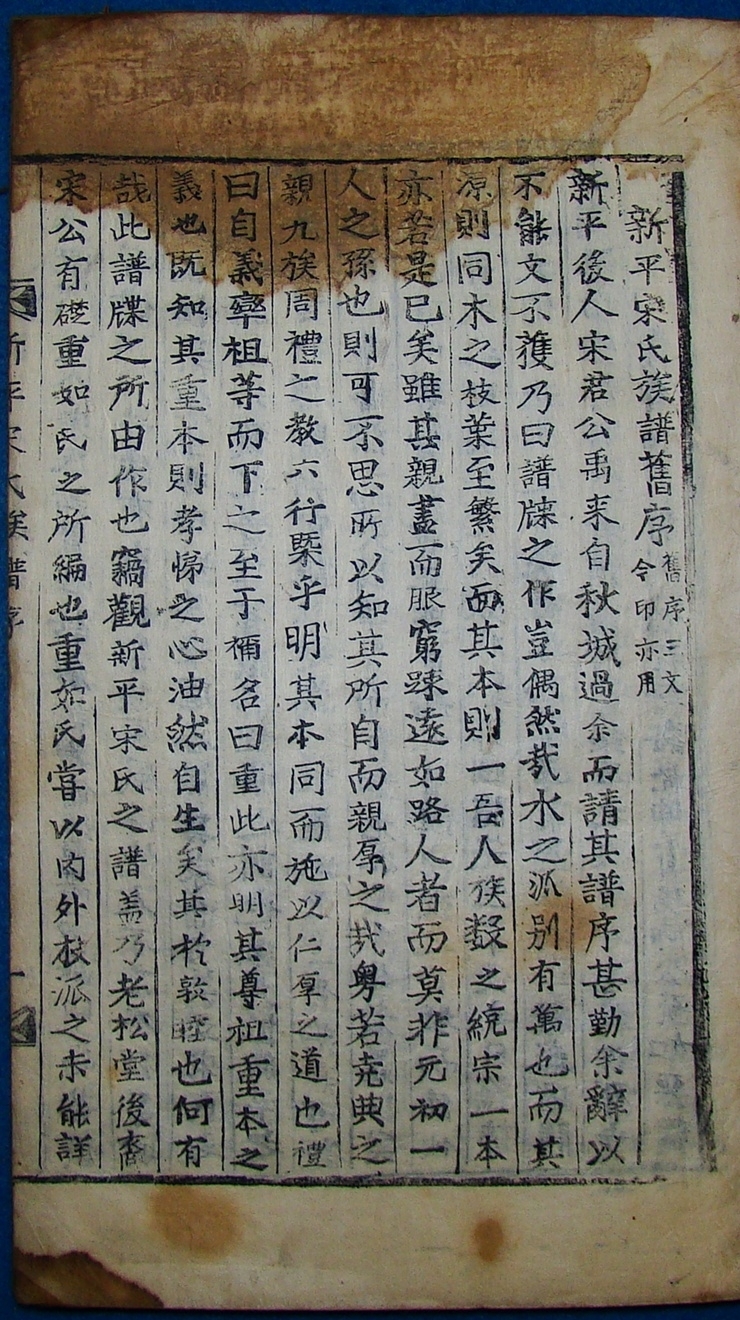 新平宋氏族譜舊序 舊序三文
令印亦用
新平後人宋君公禹来自秋城過余而請其譜序甚勤余辭以
不能文不獲乃曰譜牒之作豈偶然㢤水之派别有萬也而其
源則同木之枝葉至繁矣而其本則一吾人族数之統宗一本
亦若是已矣雖其親盡而服窮踈遠如路人者而莫非元初一
人之孫也則可不思所以知其所自而親厚之㢤粤若尭典之
親九族周禮之教六行槩乎明其本同而施以仁厚之道也禮
曰自義率祖等而下之至于禰名曰重此亦明其尊祖重本之
義也既知其重本則孝悌之心油然自生矣其於敦睦也何有
哉此譜牒之所由作也竊觀新平宋氏之譜盖乃老松堂後裔
宋公有礎重如氏之所編也重如氏嘗以内外枝派之未能詳
新平宋氏族譜序
一